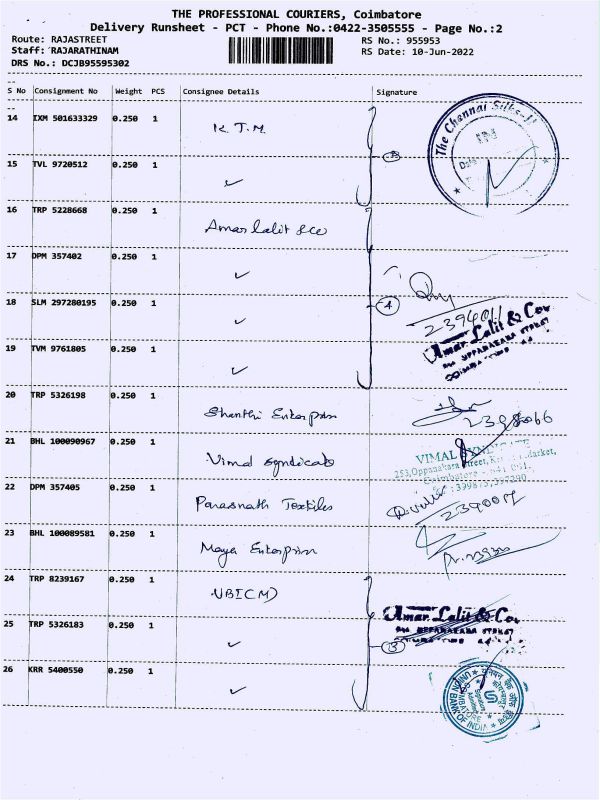 THE PROFESSIONAL COURIERS, Coimbatore
Delivery Runsheet - PCT - Phone No.:0422-3505555 - Page No.:2
Route: RAJASTREET
RS No.: 955953
Staff: RAJARATHINAM
RS Date: 10-Jun-2022
DRS No.: DCJB95595302
S No Consignment No Weight PCS Consignee Details Signature
14 IXM 501633329 0.250 1 K.T.M. The Chennai Silks
15 TVL 9720512 0.250 1 ✓
16 TRP 5228668 0.250 1 Amar Lalit &co
17 DPM 357402 0.250 1 ✓
18 SLM 297280195 0.250 1 ✓ 4
2394011
Amar Lalit & Co.
UPPANAKARA STREET
19 TVM 9761805 0.250 1 ✓
20 TRP 5326198 0.250 1 Shanthi Enterprises
21 BHL 100090967 0.250 1 Vimal Syndicate
VIMAL SYNDICATE
253, Oppanakara Street,
22 DPM 357405 0.250 1 Parasnath Textiles
2390017
23 BHL 100089581 0.250 1 Maya Enterprises
24 TRP 8239167 0.250 1 UBI(CM)
25 TRP 5326183 0.250 1 ✓ 3
Amar Lalit & Co.
UPPANAKARA STREET
26 KRR 5400550 0.250 1 ✓
UNION BANK OF INDIA
COIMBATORE